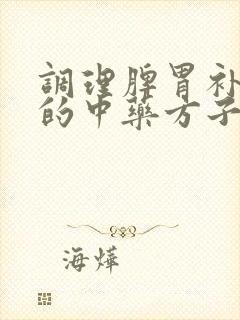 調理脾胃补
的中藥方子
海燁